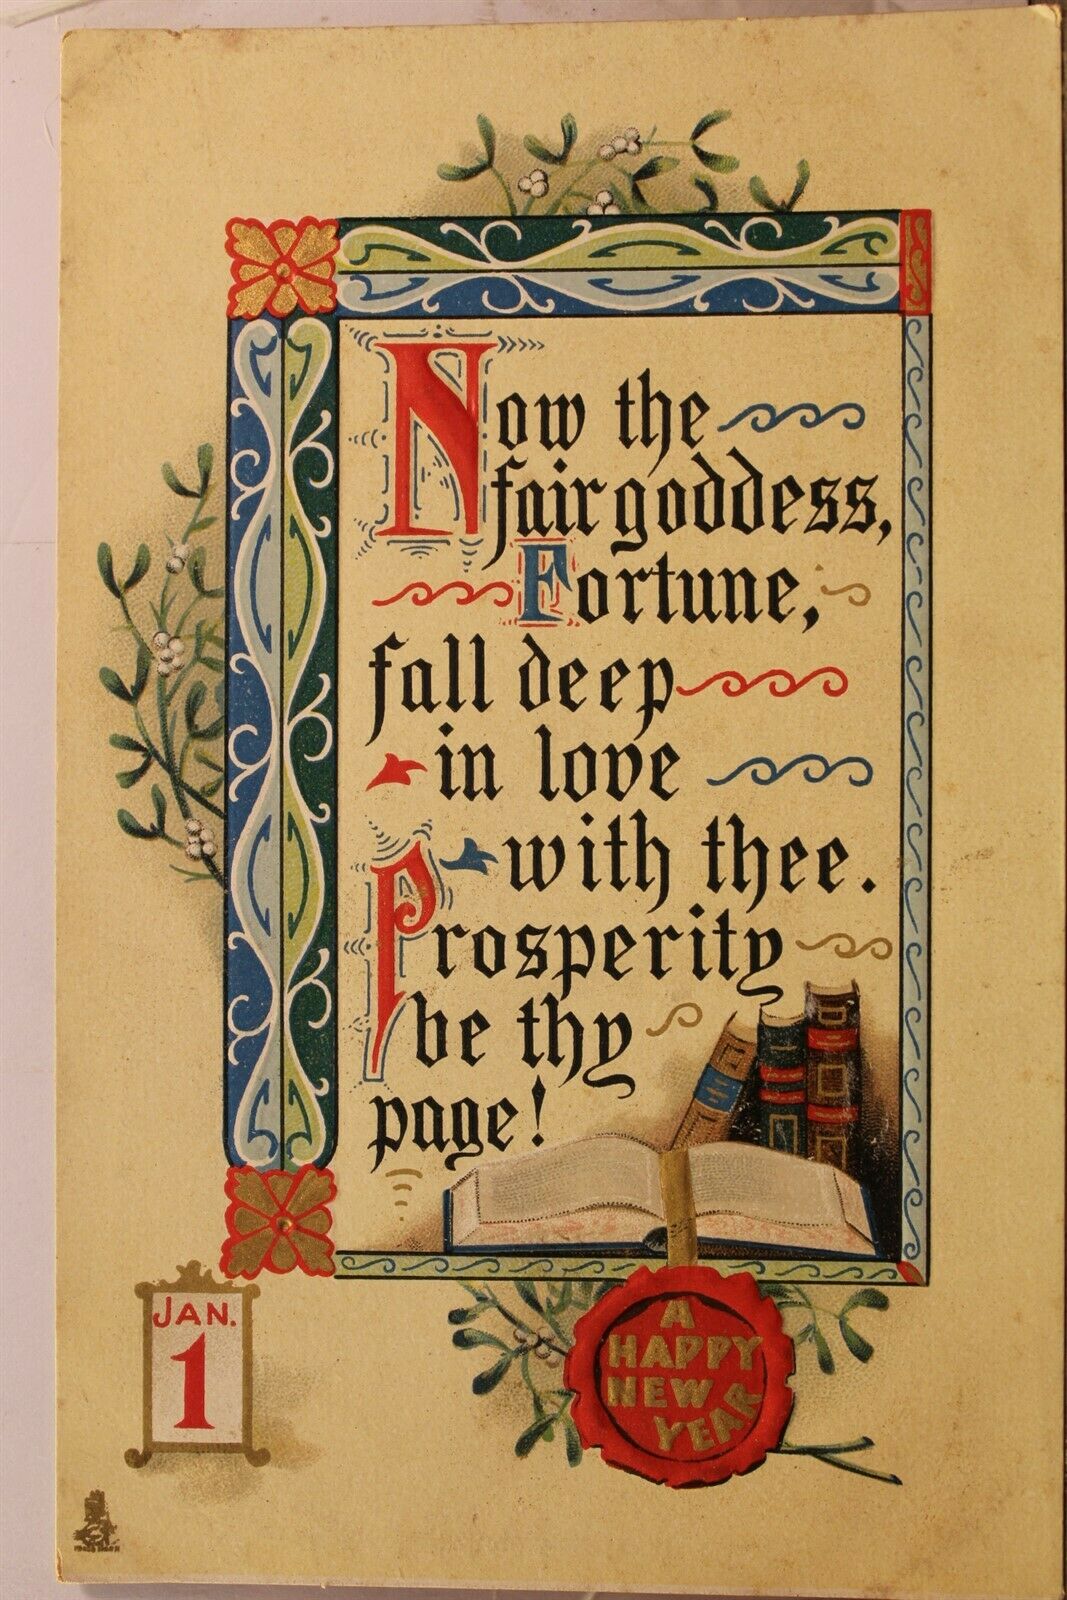 Now the
fair goddess,
Fortune,
fall deep
in love
with thee.
Prosperity
be thy
page!
JAN.
1
A
HAPPY
NEW
YEAR